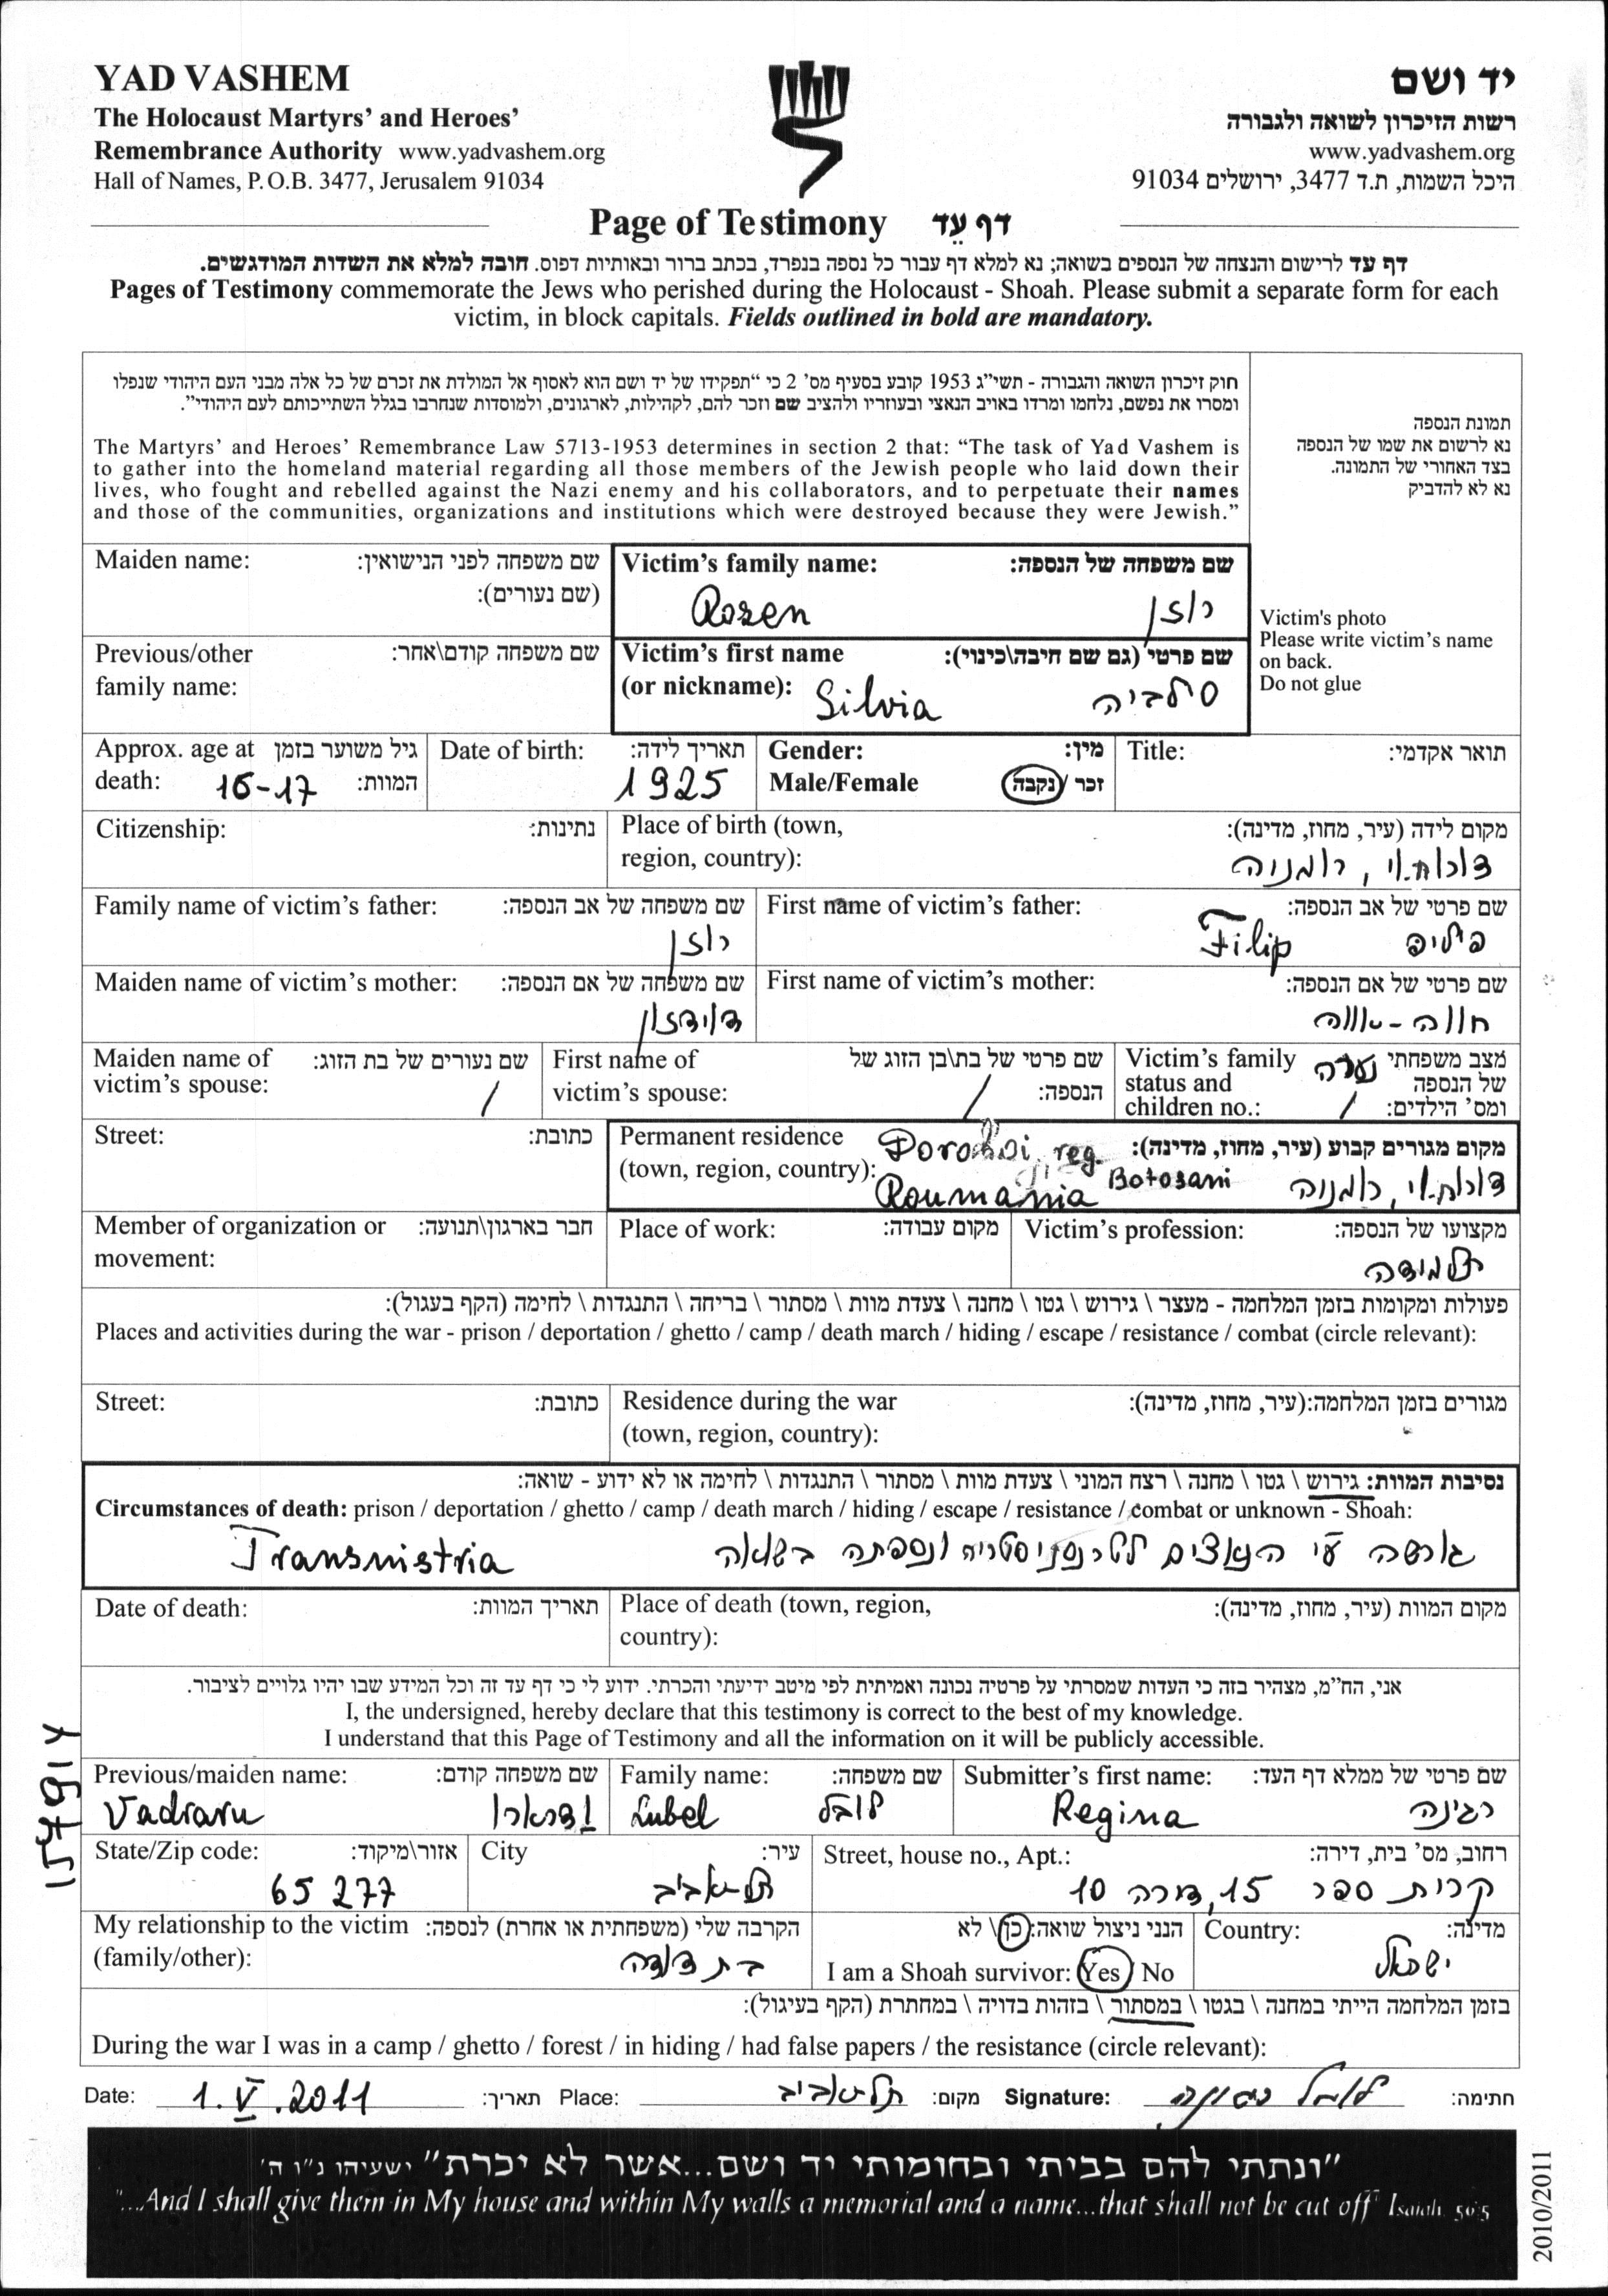 YAD VASHEM
The Holocaust Martyrs' and Heroes'
Remembrance Authority www.yadvashem.org
Hall of Names, P.O.B. 3477, Jerusalem 91034
יד ושם
רשות הזיכרון לשואה ולגבורה
www.yadvashem.org
היכל השמות, ת.ד 3477, ירושלים 91034
Page of Testimony דף עֵד
דף עד לרישום והנצחה של הנספים בשואה; נא למלא דף עבור כל נספה בנפרד, בכתב ברור ובאותיות דפוס. חובה למלא את השדות המודגשים.
Pages of Testimony commemorate the Jews who perished during the Holocaust - Shoah. Please submit a separate form for each
victim, in block capitals. Fields outlined in bold are mandatory.
חוק זיכרון השואה והגבורה - תשי"ג 1953 קובע בסעיף מס' 2 כי "תפקידו של יד ושם הוא לאסוף אל המולדת את זכרם של כל אלה מבני העם היהודי שנפלו
ומסרו את נפשם, נלחמו ומרדו באויב הנאצי ובעוזריו ולהציב שם וזכר להם, לקהילות, לארגונים, ולמוסדות שנחרבו בגלל השתייכותם לעם היהודי".
The Martyrs' and Heroes' Remembrance Law 5713-1953 determines in section 2 that: "The task of Yad Vashem is
to gather into the homeland material regarding all those members of the Jewish people who laid down their
lives, who fought and rebelled against the Nazi enemy and his collaborators, and to perpetuate their names
and those of the communities, organizations and institutions which were destroyed because they were Jewish."
תמונת הנספה
נא לרשום את שמו של הנספה
בצד האחורי של התמונה.
נא לא להדביק
Victim's photo
Please write victim's name
on back.
Do not glue
Maiden name: שם משפחה לפני הנישואין:
(שם נעורים):
Victim's family name: שם משפחה של הנספה:
Rozen רוזן
Previous/other שם משפחה קודם\אחר:
family name:
Victim's first name שם פרטי (גם שם חיבה\כינוי):
(or nickname): Silvia סילביה
Approx. age at גיל משוער בזמן
death: 16-17 המוות:
Date of birth: תאריך לידה:
1925
Gender: מין:
Male/Female זכר / נקבה
Title: תואר אקדמי:
Citizenship: נתינות:
Place of birth (town, מקום לידה (עיר, מחוז, מדינה):
region, country): דורוחוי, רומניה
Family name of victim's father: שם משפחה של אב הנספה:
רוזן
First name of victim's father: שם פרטי של אב הנספה:
Filip פיליפ
Maiden name of victim's mother: שם משפחה של אם הנספה:
דוידזון
First name of victim's mother: שם פרטי של אם הנספה:
חווה -
Maiden name of שם נעורים של בת הזוג:
victim's spouse: /
First name of שם פרטי של בת\בן הזוג של
victim's spouse: / הנספה:
Victim's family מצב משפחתי נערה
status and של הנספה
children no.: / ומס' הילדים:
Street: כתובת:
Permanent residence Dorohoi, reg. מקום מגורים קבוע (עיר, מחוז, מדינה):
(town, region, country): Roumania Botosani דורוחוי, רומניה
Member of organization or חבר בארגון\תנועה:
movement:
Place of work: מקום עבודה:
Victim's profession: מקצועו של הנספה:
תלמידה
פעולות ומקומות בזמן המלחמה - מעצר \ גירוש \ גטו \ מחנה \ צעדת מוות \ מסתור \ בריחה \ התנגדות \ לחימה (הקף בעגול):
Places and activities during the war - prison / deportation / ghetto / camp / death march / hiding / escape / resistance / combat (circle relevant):
Street: כתובת:
Residence during the war מגורים בזמן המלחמה:(עיר, מחוז, מדינה):
(town, region, country):
נסיבות המוות: גירוש \ גטו \ מחנה \ רצח המוני \ צעדת מוות \ מסתור \ התנגדות \ לחימה או לא ידוע - שואה:
Circumstances of death: prison / deportation / ghetto / camp / death march / hiding / escape / resistance / combat or unknown - Shoah:
Transnistria גורשה ע"י הנאצים לטרנסניסטריה ונספתה בשואה
Date of death: תאריך המוות:
Place of death (town, region, מקום המוות (עיר, מחוז, מדינה):
country):
אני, הח"מ, מצהיר בזה כי העדות שמסרתי על פרטיה נכונה ואמיתית לפי מיטב ידיעתי והכרתי. ידוע לי כי דף עד זה וכל המידע שבו יהיו גלויים לציבור.
I, the undersigned, hereby declare that this testimony is correct to the best of my knowledge.
I understand that this Page of Testimony and all the information on it will be publicly accessible.
Previous/maiden name: שם משפחה קודם:
Vadraru ודרארו
Family name: שם משפחה:
Lubel לובל
Submitter's first name: שם פרטי של ממלא דף העד:
Regina רגינה
State/Zip code: אזור\מיקוד:
65 277
City עיר:
תל-אביב
Street, house no., Apt.: רחוב, מס' בית, דירה:
קרית ספר 15, דירה 10
My relationship to the victim הקרבה שלי (משפחתית או אחרת) לנספה:
(family/other): בת דודה
הנני ניצול שואה: כן \ לא
I am a Shoah survivor: Yes / No
Country: מדינה:
ישראל
בזמן המלחמה הייתי במחנה \ בגטו \ במסתור \ בזהות בדויה \ במחתרת (הקף בעיגול):
During the war I was in a camp / ghetto / forest / in hiding / had false papers / the resistance (circle relevant):
Date: 1.V.2011 תאריך: Place: תל-אביב מקום: Signature: לובל רגינה חתימה:
"ונתתי להם בביתי ובחומותי יד ושם...אשר לא יכרת" ישעיהו נ"ו ה'
"...And I shall give them in My house and within My walls a memorial and a name...that shall not be cut off" Isaiah, 56:5
2010/2011